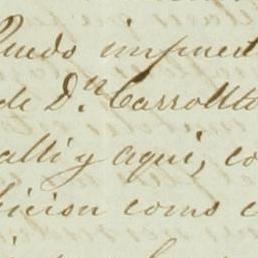 Quedo impuest
de Dn. Carrollto
alli y aqui, co
icion como e